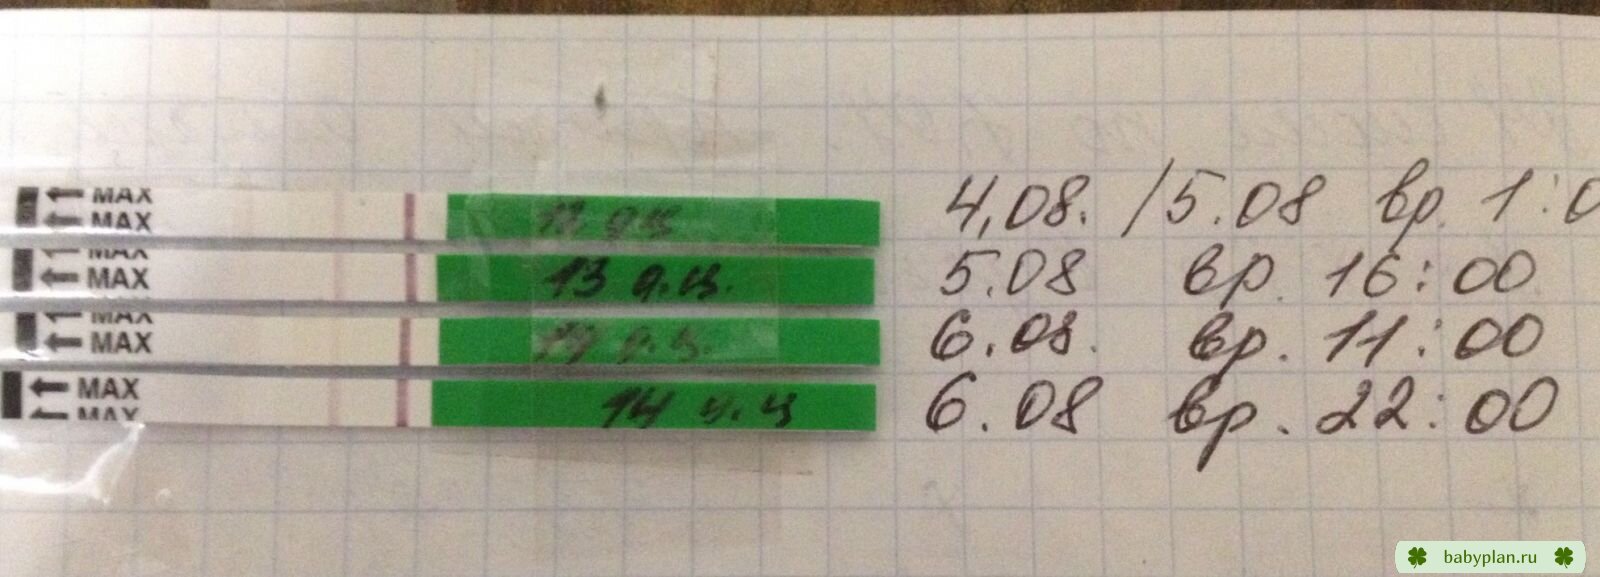 MAX
MAX
12 д.ц. 4.08. /5.08 вр. 1:0
MAX
MAX
13 д.ц. 5.08 вр. 16:00
MAX
MAX
14 д.ц. 6.08. вр. 11:00
MAX
MAX
14 д.ц 6.08 вр. 22:00
babyplan.ru